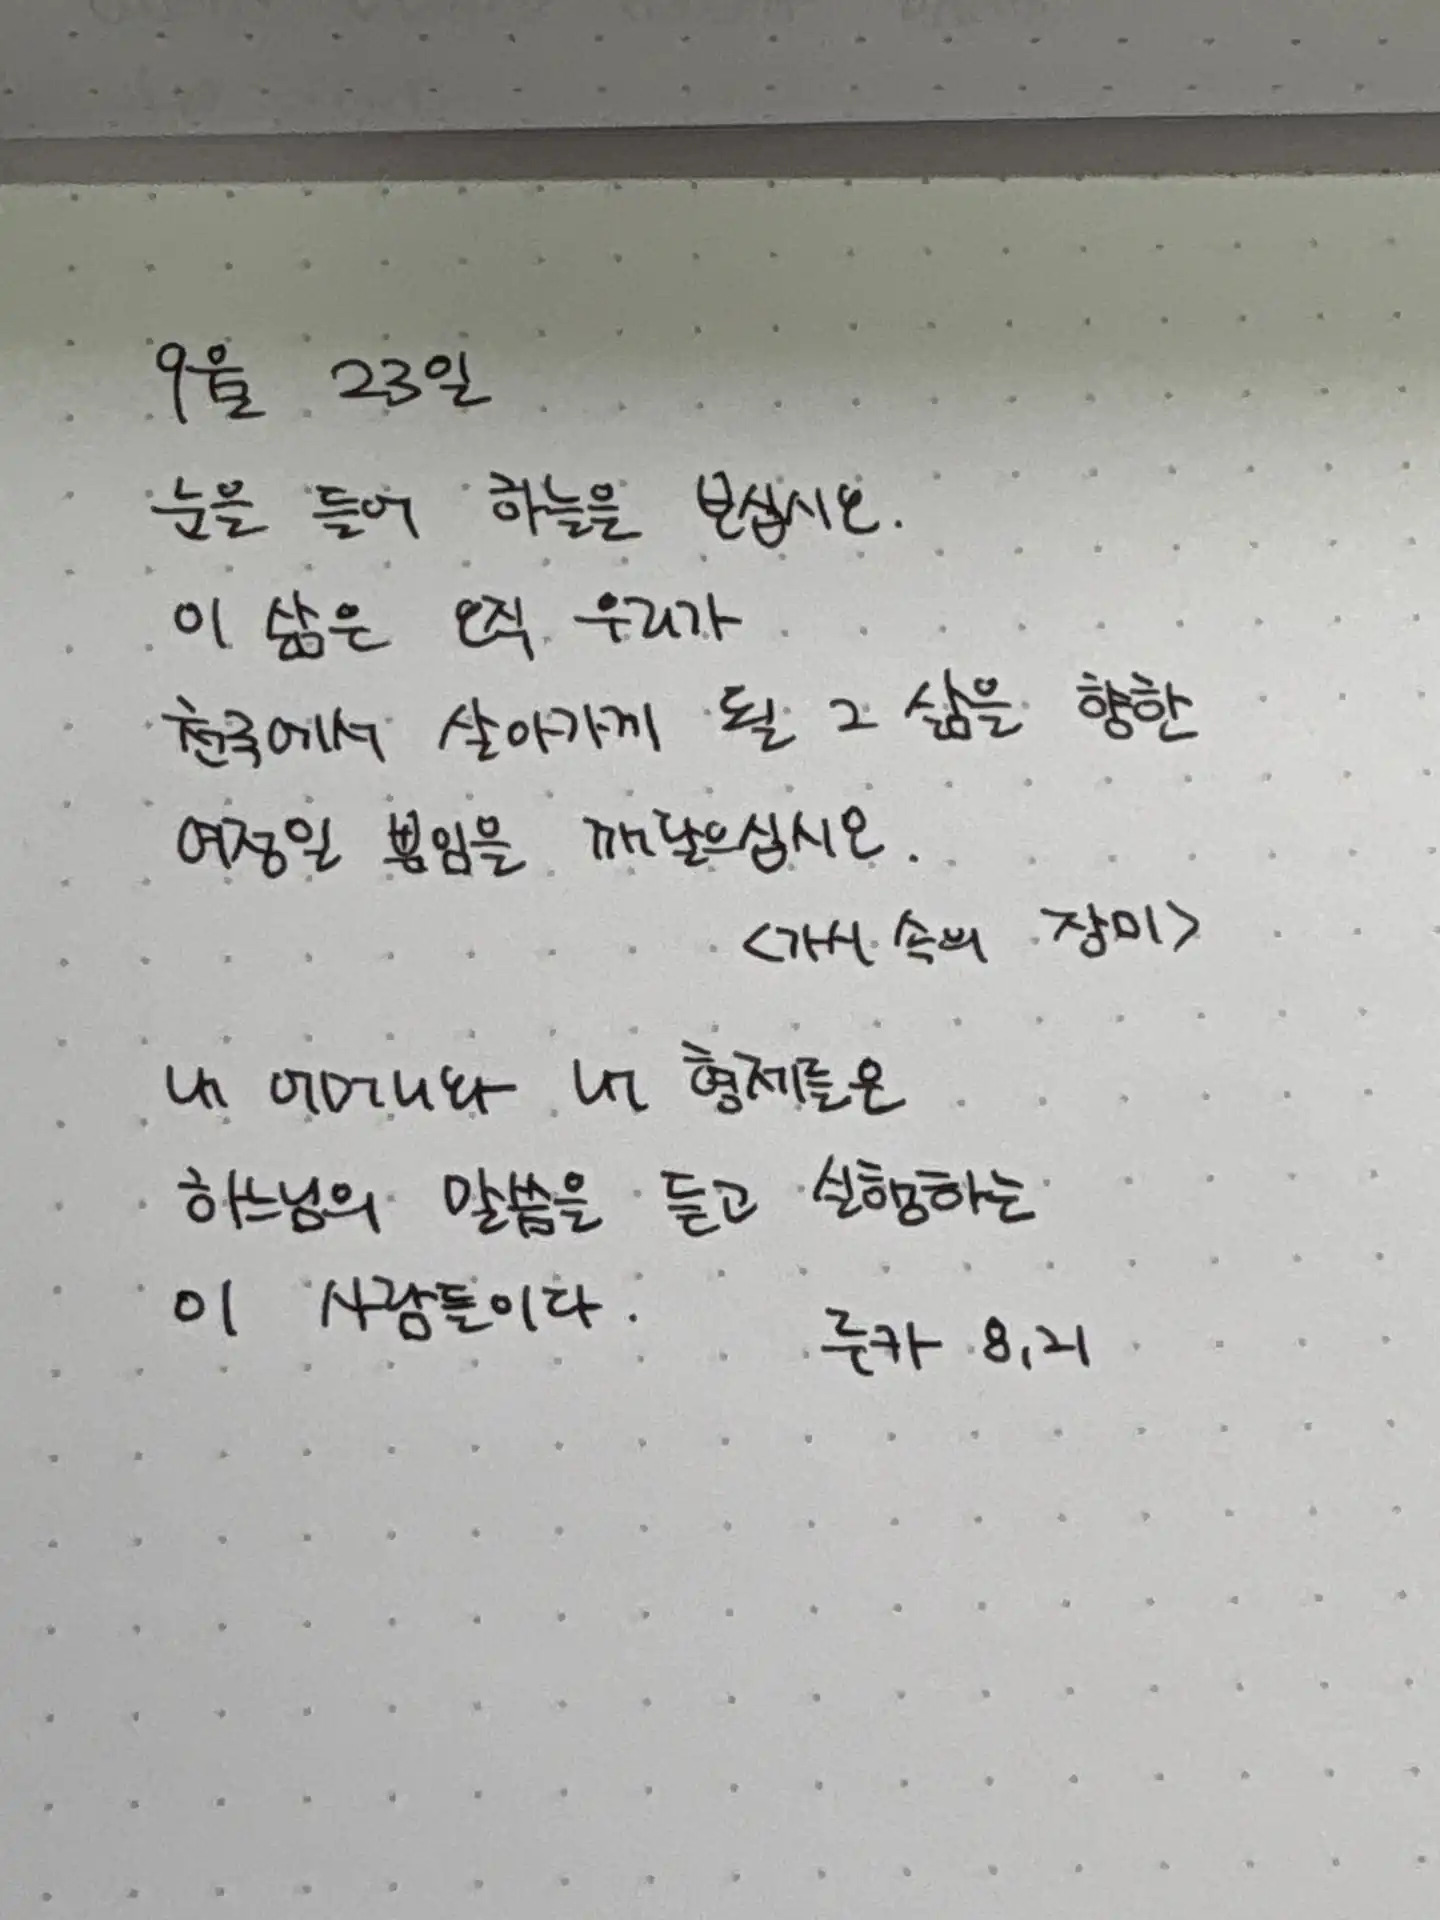 9월 23일
눈을 들어 하늘을 보십시오.
이 삶은 오직 우리가
천국에서 살아가게 될 그 삶을 향한
여정일 뿐임을 깨달으십시오.
<가시 속의 장미>
내 어머니와 내 형제들은
하느님의 말씀을 듣고 실행하는
이 사람들이다.
루카 8,21